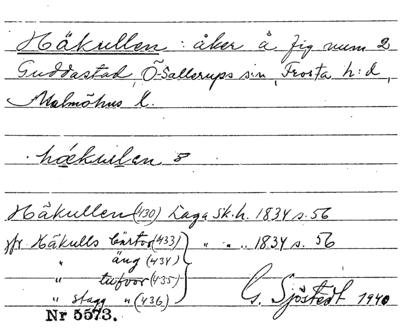 Håkullen : åker å fig num 2
Guddastad, Ö-Sallerups s:n, Frosta h:d,
Malmöhus l.
Håkullen (430) Laga Sk.h. 1834 s. 56
jfr Håkulls (433) " " " 1834 s. 56
" äng (434)
" tufvor (435)
" stagg " (436)
G. Sjöstedt 1940
Nr 5573.